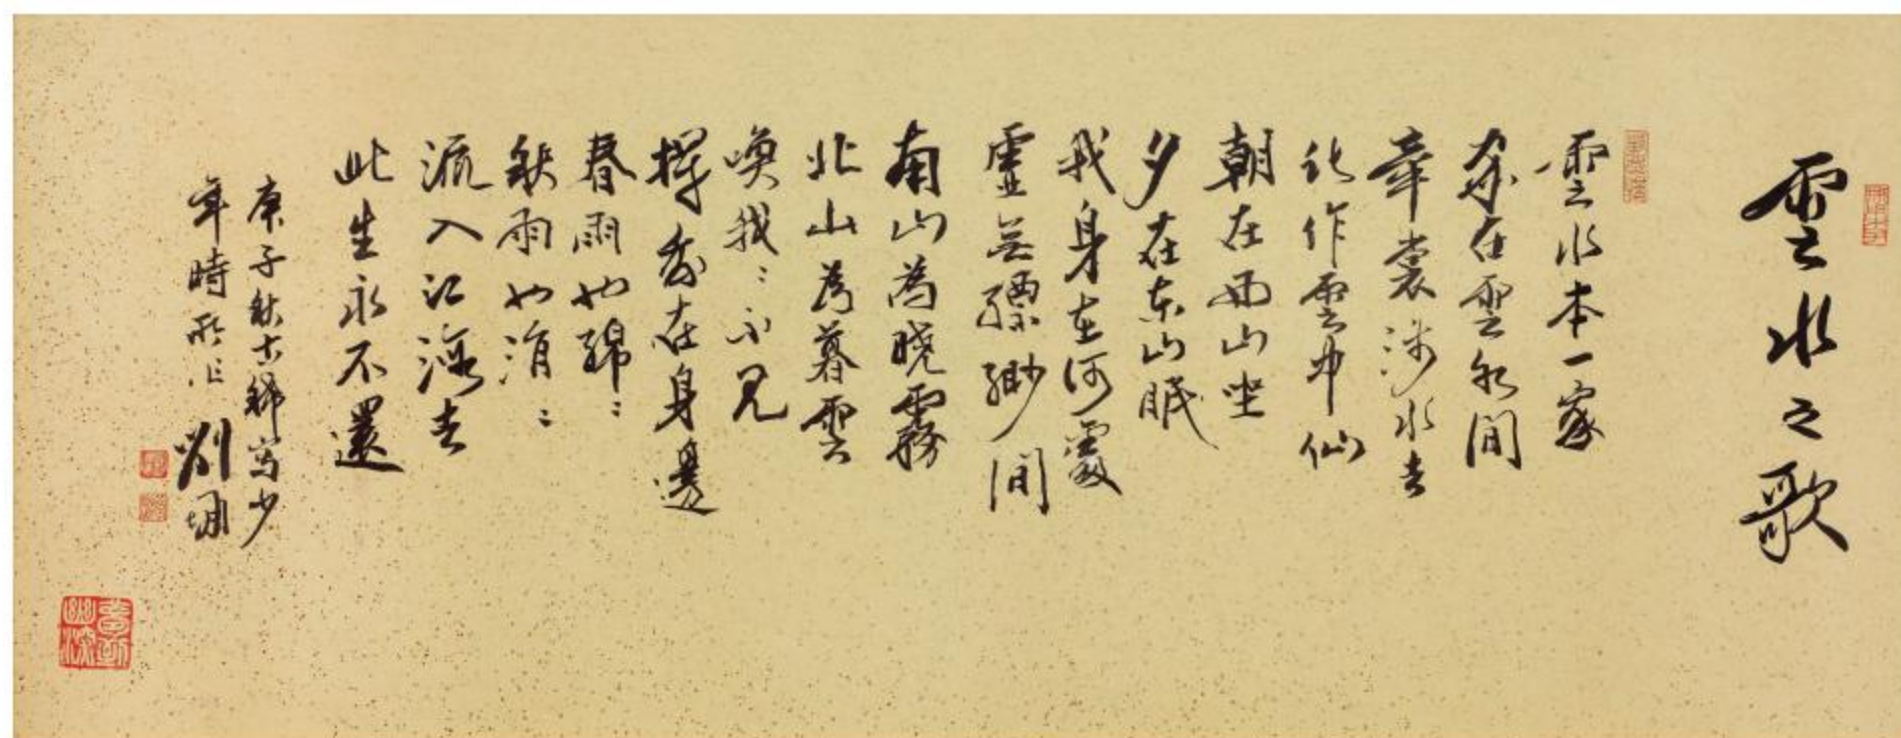 雲水之歌
雲水本一家
家在雲水間
牽裳涉水去
化作雲中仙
朝在西山坐
夕在東山眠
我身在何處
虛無縹緲間
南山為曉霧
北山為暮雲
喚我我不見
擇我在身邊
春雨如綿綿
秋雨如涓涓
流入江海去
此生永不還
庚子秋古稀寫少
年時所作 劉墉